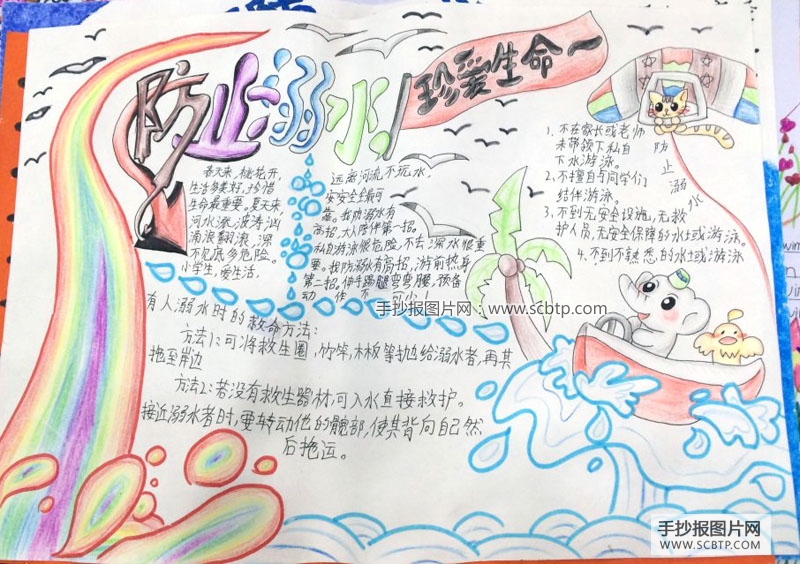 防止溺水
珍爱生命
春天来,桃花开,
生活多美好,珍惜
生命最重要。夏天来,
河水涨,波涛汹
涌浪翻滚,深
不见底多危险。
小学生,爱生活,
远离河流不玩水,
安安全全最可
靠。我防溺水有
高招,大人陪伴第一招。
私自游泳很危险,不去深水很重
要。我防溺水有高招,游前热身
第二招,伸手踢腿弯弯腰,预备
动作不可少。
1、不在家长或老师
未带领下私自
下水游泳。
2、不擅自与同学们
结伴游泳。
3、不到无安全设施,无救
护人员,无安全保障的水边或游泳。
4、不到不熟悉的水边或游泳
防止溺水
有人溺水时的救命方法:
方法1:可将救生圈,竹竿,木板等抛给溺水者,再其
拖至岸边
方法2:若没有救生器材,可入水直接救护。
接近溺水者时,要转动他的髋部,使其背向自己然
后拖运。
手抄报图片网:www.scbtp.com
手抄报图片网
WWW.SCBTP.COM